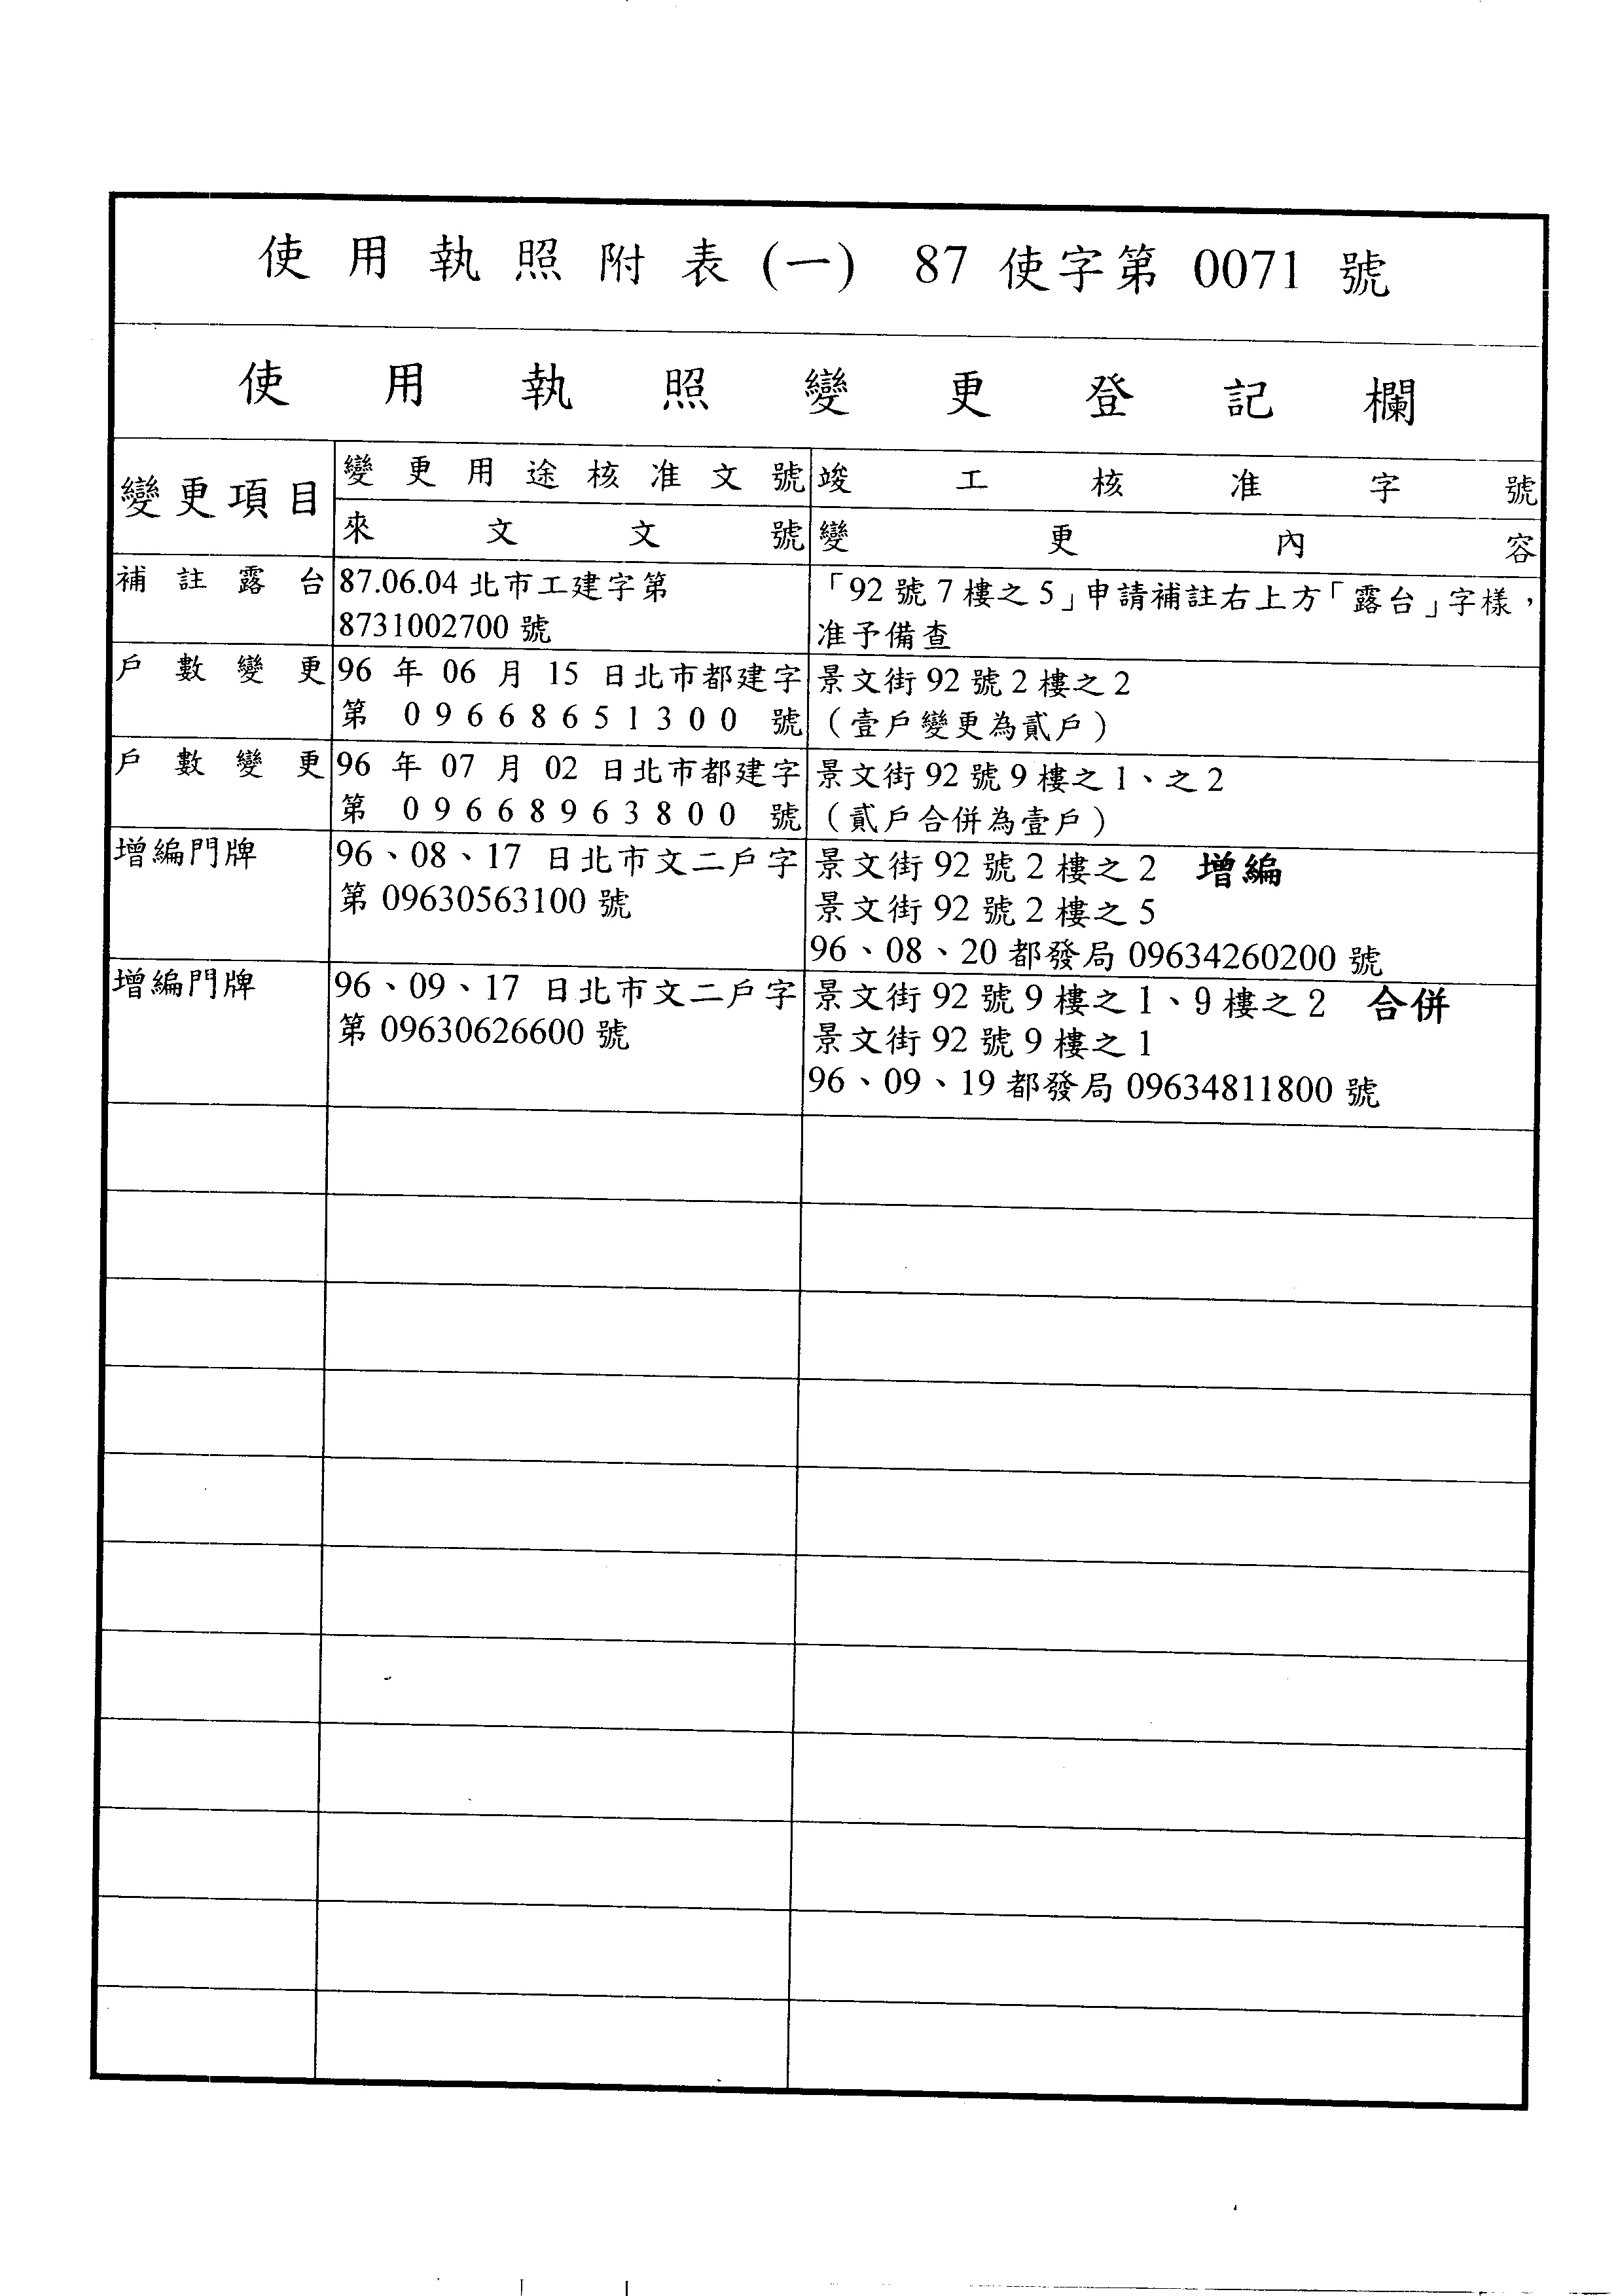 使用執照附表(一) 87 使字第 0071 號
使用執照變更登記欄
變更項目
變更用途核准文號
竣工核准字號
來文文號
變更內容
補註露台
87.06.04 北市工建字第
8731002700 號
「92 號 7 樓之 5」申請補註右上方「露台」字樣，
准予備查
戶數變更
96 年 06 月 15 日北市都建字
第 09668651300 號
景文街 92 號 2 樓之 2
（壹戶變更為貳戶）
戶數變更
96 年 07 月 02 日北市都建字
第 09668963800 號
景文街 92 號 9 樓之 1、之 2
（貳戶合併為壹戶）
增編門牌
96、08、17 日北市文二戶字
第 09630563100 號
景文街 92 號 2 樓之 2 增編
景文街 92 號 2 樓之 5
96、08、20 都發局 09634260200 號
增編門牌
96、09、17 日北市文二戶字
第 09630626600 號
景文街 92 號 9 樓之 1、9 樓之 2 合併
景文街 92 號 9 樓之 1
96、09、19 都發局 09634811800 號